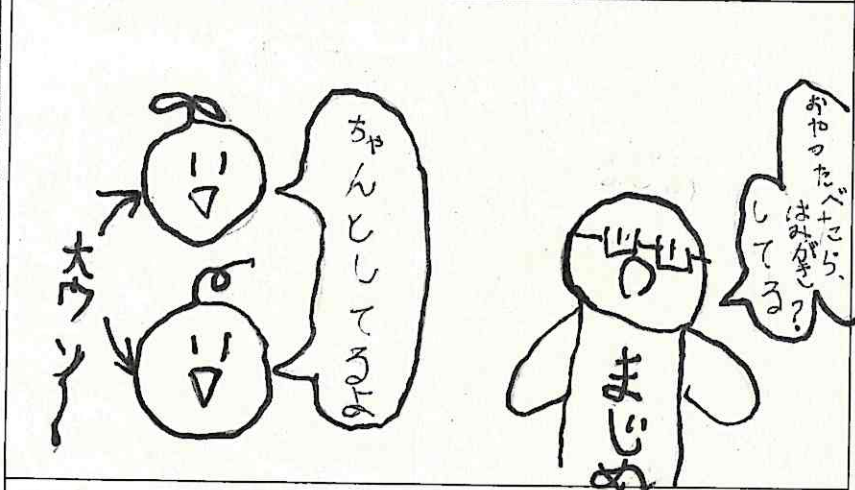 おやつたべたら、
はみがき
してる?
まじめ
ちゃんとしてるよ
大ウソ